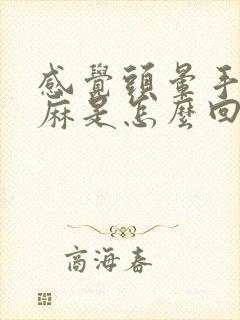 感覺頭暈手
麻是怎麼回
商海春